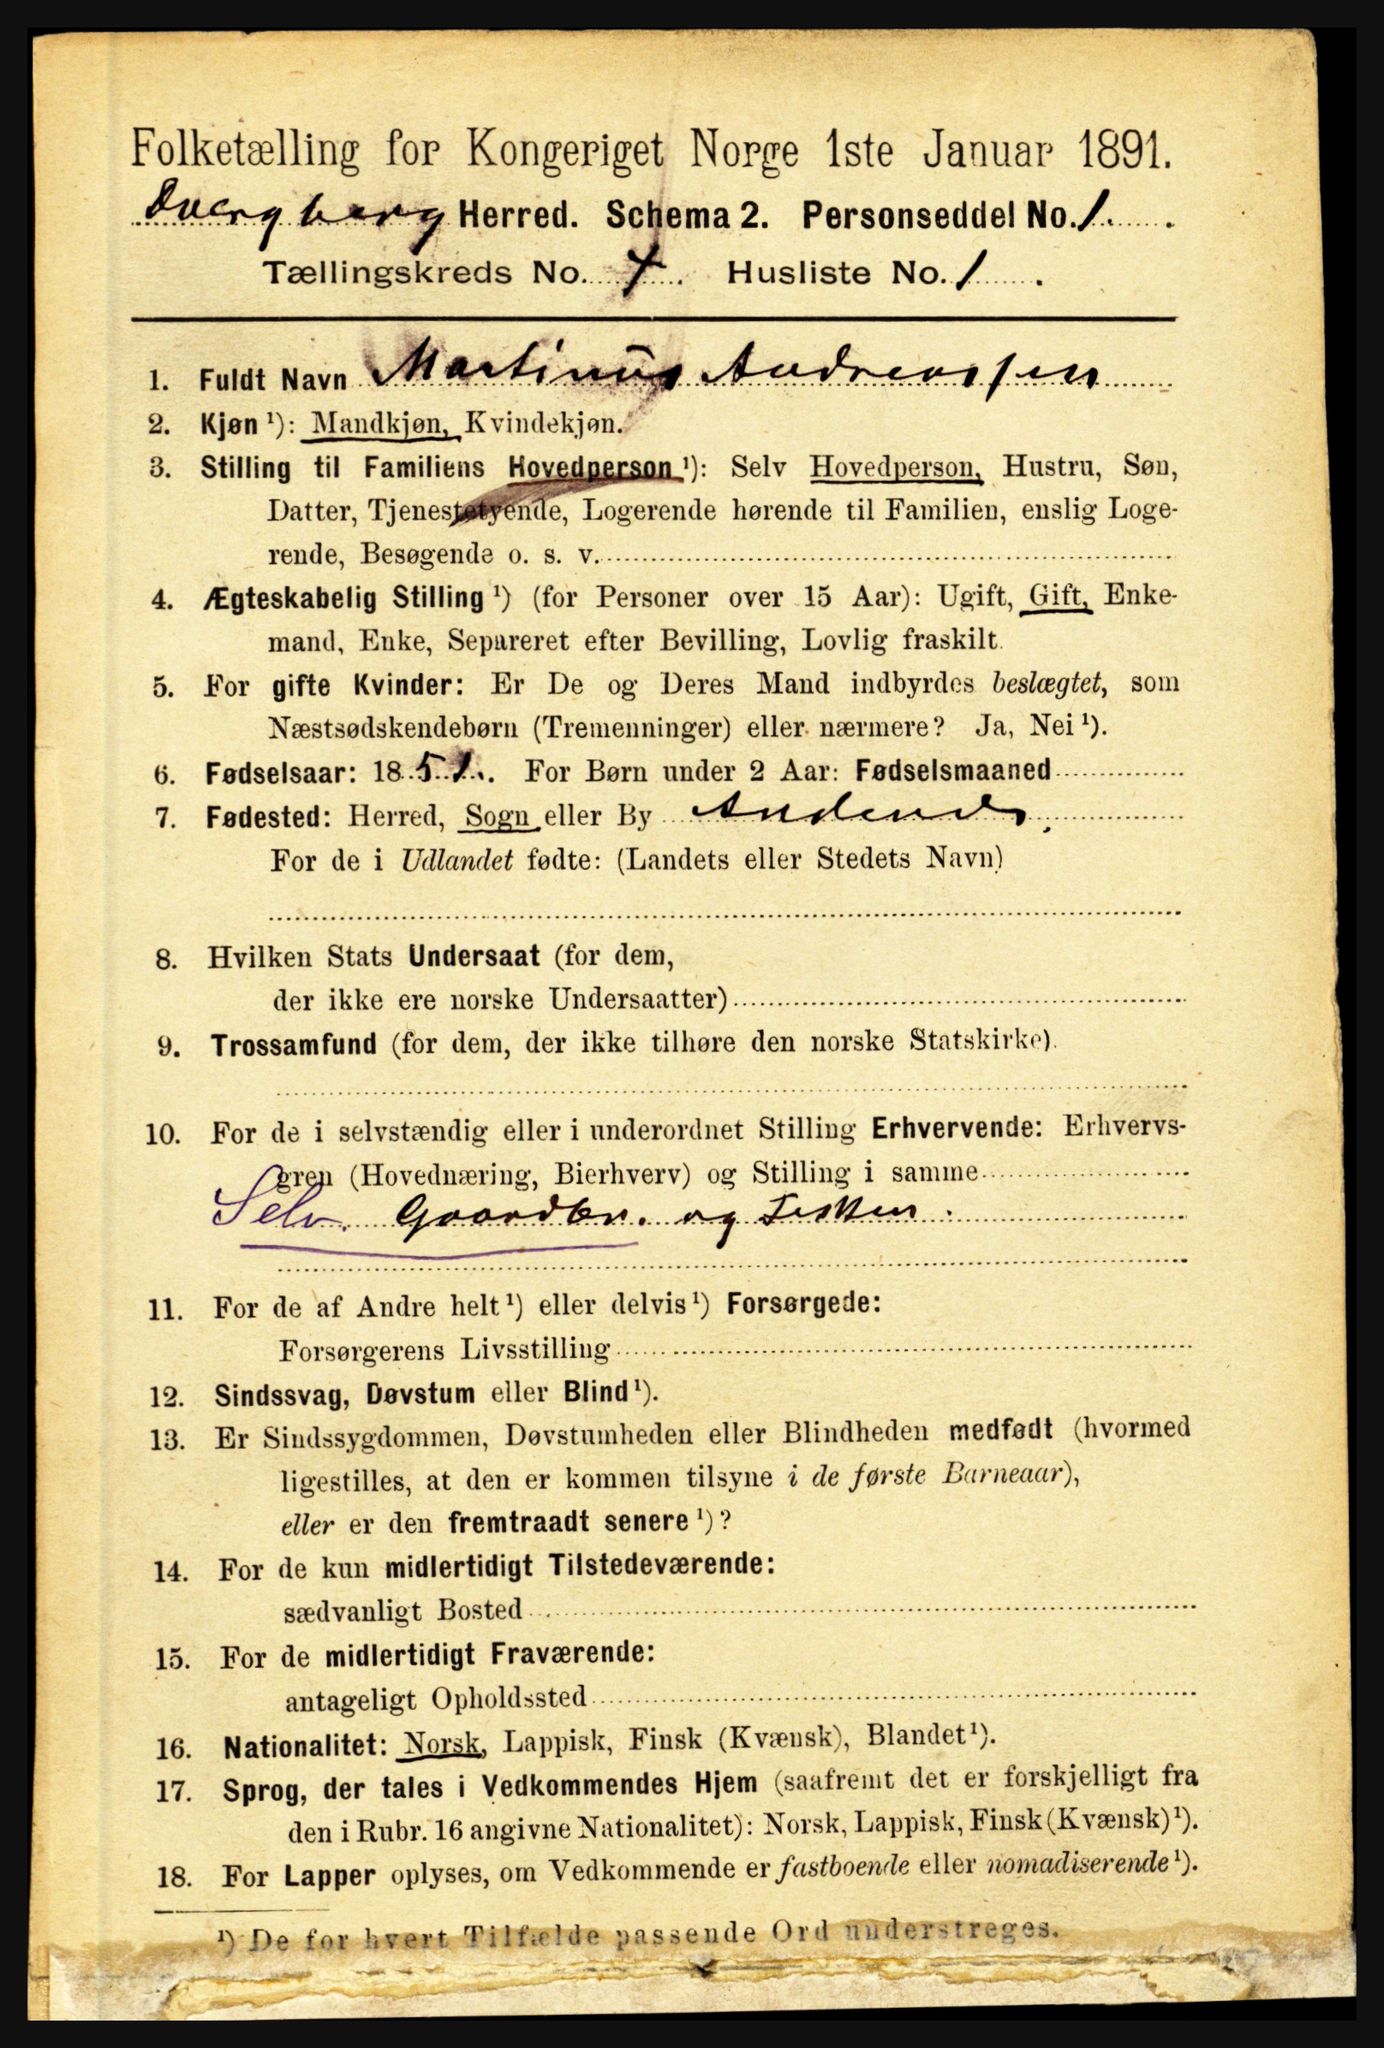 Folketælling for Kongeriget Norge 1ste Januar 1891.
Dvergberg Herred. Schema 2. Personseddel No. 1.
Tællingskreds No. 4. Husliste No. 1.
1. Fuldt Navn Martinus Andreassen
2. Kjøn ¹): Mandkjøn, Kvindekjøn.
3. Stilling til Familiens Hovedperson ¹): Selv Hovedperson, Hustru, Søn,
Datter, Tjenestetyende, Logerende hørende til Familien, enslig Loge-
rende, Besøgende o. s. v.
4. Ægteskabelig Stilling ¹) (for Personer over 15 Aar): Ugift, Gift, Enke-
mand, Enke, Separeret efter Bevilling, Lovlig fraskilt.
5. For gifte Kvinder: Er De og Deres Mand indbyrdes beslægtet, som
Næstsødskendebørn (Tremenninger) eller nærmere? Ja, Nei ¹).
6. Fødselsaar: 1851. For Børn under 2 Aar: Fødselsmaaned
7. Fødested: Herred, Sogn eller By Andenes.
For de i Udlandet fødte: (Landets eller Stedets Navn)
8. Hvilken Stats Undersaat (for dem,
der ikke ere norske Undersaatter)
9. Trossamfund (for dem, der ikke tilhøre den norske Statskirke).
10. For de i selvstændig eller i underordnet Stilling Erhvervende: Erhvervs-
gren (Hovednæring, Bierhverv) og Stilling i samme
Selv. Gaardbr. og Fisker.
11. For de af Andre helt ¹) eller delvis ¹) Forsørgede:
Forsørgerens Livsstilling
12. Sindssvag, Døvstum eller Blind ¹).
13. Er Sindssygdommen, Døvstumheden eller Blindheden medfødt (hvormed
ligestilles, at den er kommen tilsyne i de første Barneaar),
eller er den fremtraadt senere ¹)?
14. For de kun midlertidigt Tilstedeværende:
sædvanligt Bosted
15. For de midlertidigt Fraværende:
antageligt Opholdssted
16. Nationalitet: Norsk, Lappisk, Finsk (Kvænsk), Blandet ¹).
17. Sprog, der tales i Vedkommendes Hjem (saafremt det er forskjelligt fra
den i Rubr. 16 angivne Nationalitet): Norsk, Lappisk, Finsk (Kvænsk) ¹).
18. For Lapper oplyses, om Vedkommende er fastboende eller nomadiserende ¹).
¹) De for hvert Tilfælde passende Ord understreges.